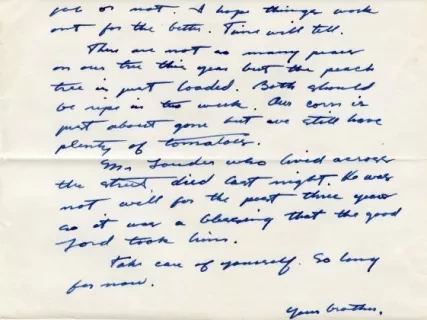 job or not. I hope things work
out for the better. Time will tell.
There are not as many pears
on our tree this year but the peach
tree is just loaded. Both should
be ripe in two week. Our corn is
just about gone but we still have
plenty of tomatoes.
Mr. who lived across
the street, died last night. He was
not well for the past three years
so it was a blessing that the good
Lord took him.
Take care of yourself. So long
for now.
Your brother,